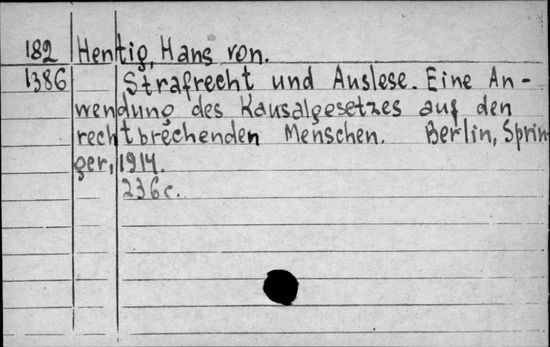 182 Hentig, Hans von.
1386 Strafrecht und Auslese. Eine An-
wendung des Kausalgesetzes auf den
rechtbrechenden Menschen. Berlin, Sprin
ger, 1914.
236c.